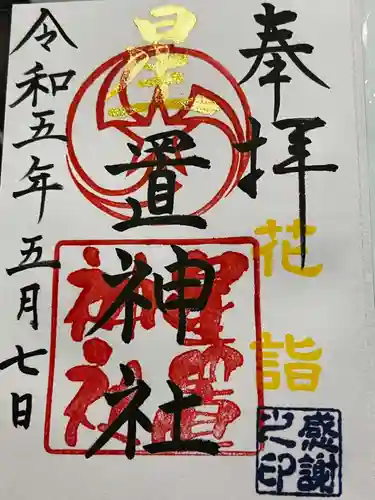 奉拝
花詣
星置神社
星置神社
令和五年五月七日
感謝之印